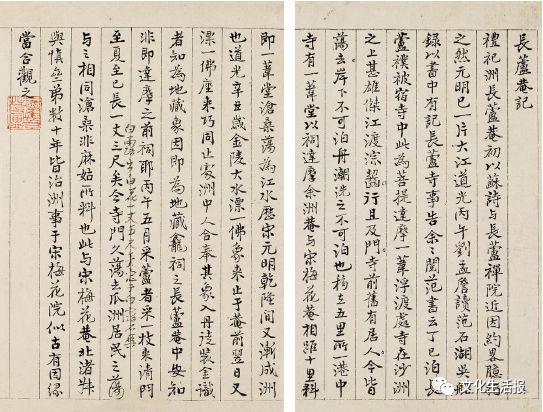 長蘆菴記
禮祀洲長蘆菴初以蘇詩与長蘆禪院近因約畧臆
之然元明已一片大江道光丙午劉孟詹讀范石湖吳船
録以書中有記長蘆寺事告余之閱范書云丁巳泊長
蘆襆被宿寺中此為菩提達摩一葦浮渡處寺在沙洲
之上甚雄傑江渡淙齧行且及門寺前舊有居人今皆
蕩去岸下不可泊舟潮洗之不可泊也移立五里所一港中
寺有一葦堂以祠達摩余洲菴与宋梅花菴相距十里料
即一葦堂滄桑蕩為江水歷宋元明乾隆間又漸成洲
也道光辛丑歲金陵大水漂一佛象來止于菴前翌日又
漂一佛座來巧同止處洲中人合奉其象入丹漆裝金識
者知為地藏象因即為地藏龕祠之長蘆菴中安知
非即達摩之前祠耶丙午五月采蘆者采一枝來清門
至夏至已長一丈三尺矣今寺門久蕩去瓜洲居民之蕩
与之相同滄桑非麻姑所料也此与宋梅花菴北渚
與慎丞弟數十年皆治洲事于宋梅花院似古有因緣
當合觀之
文化生活报